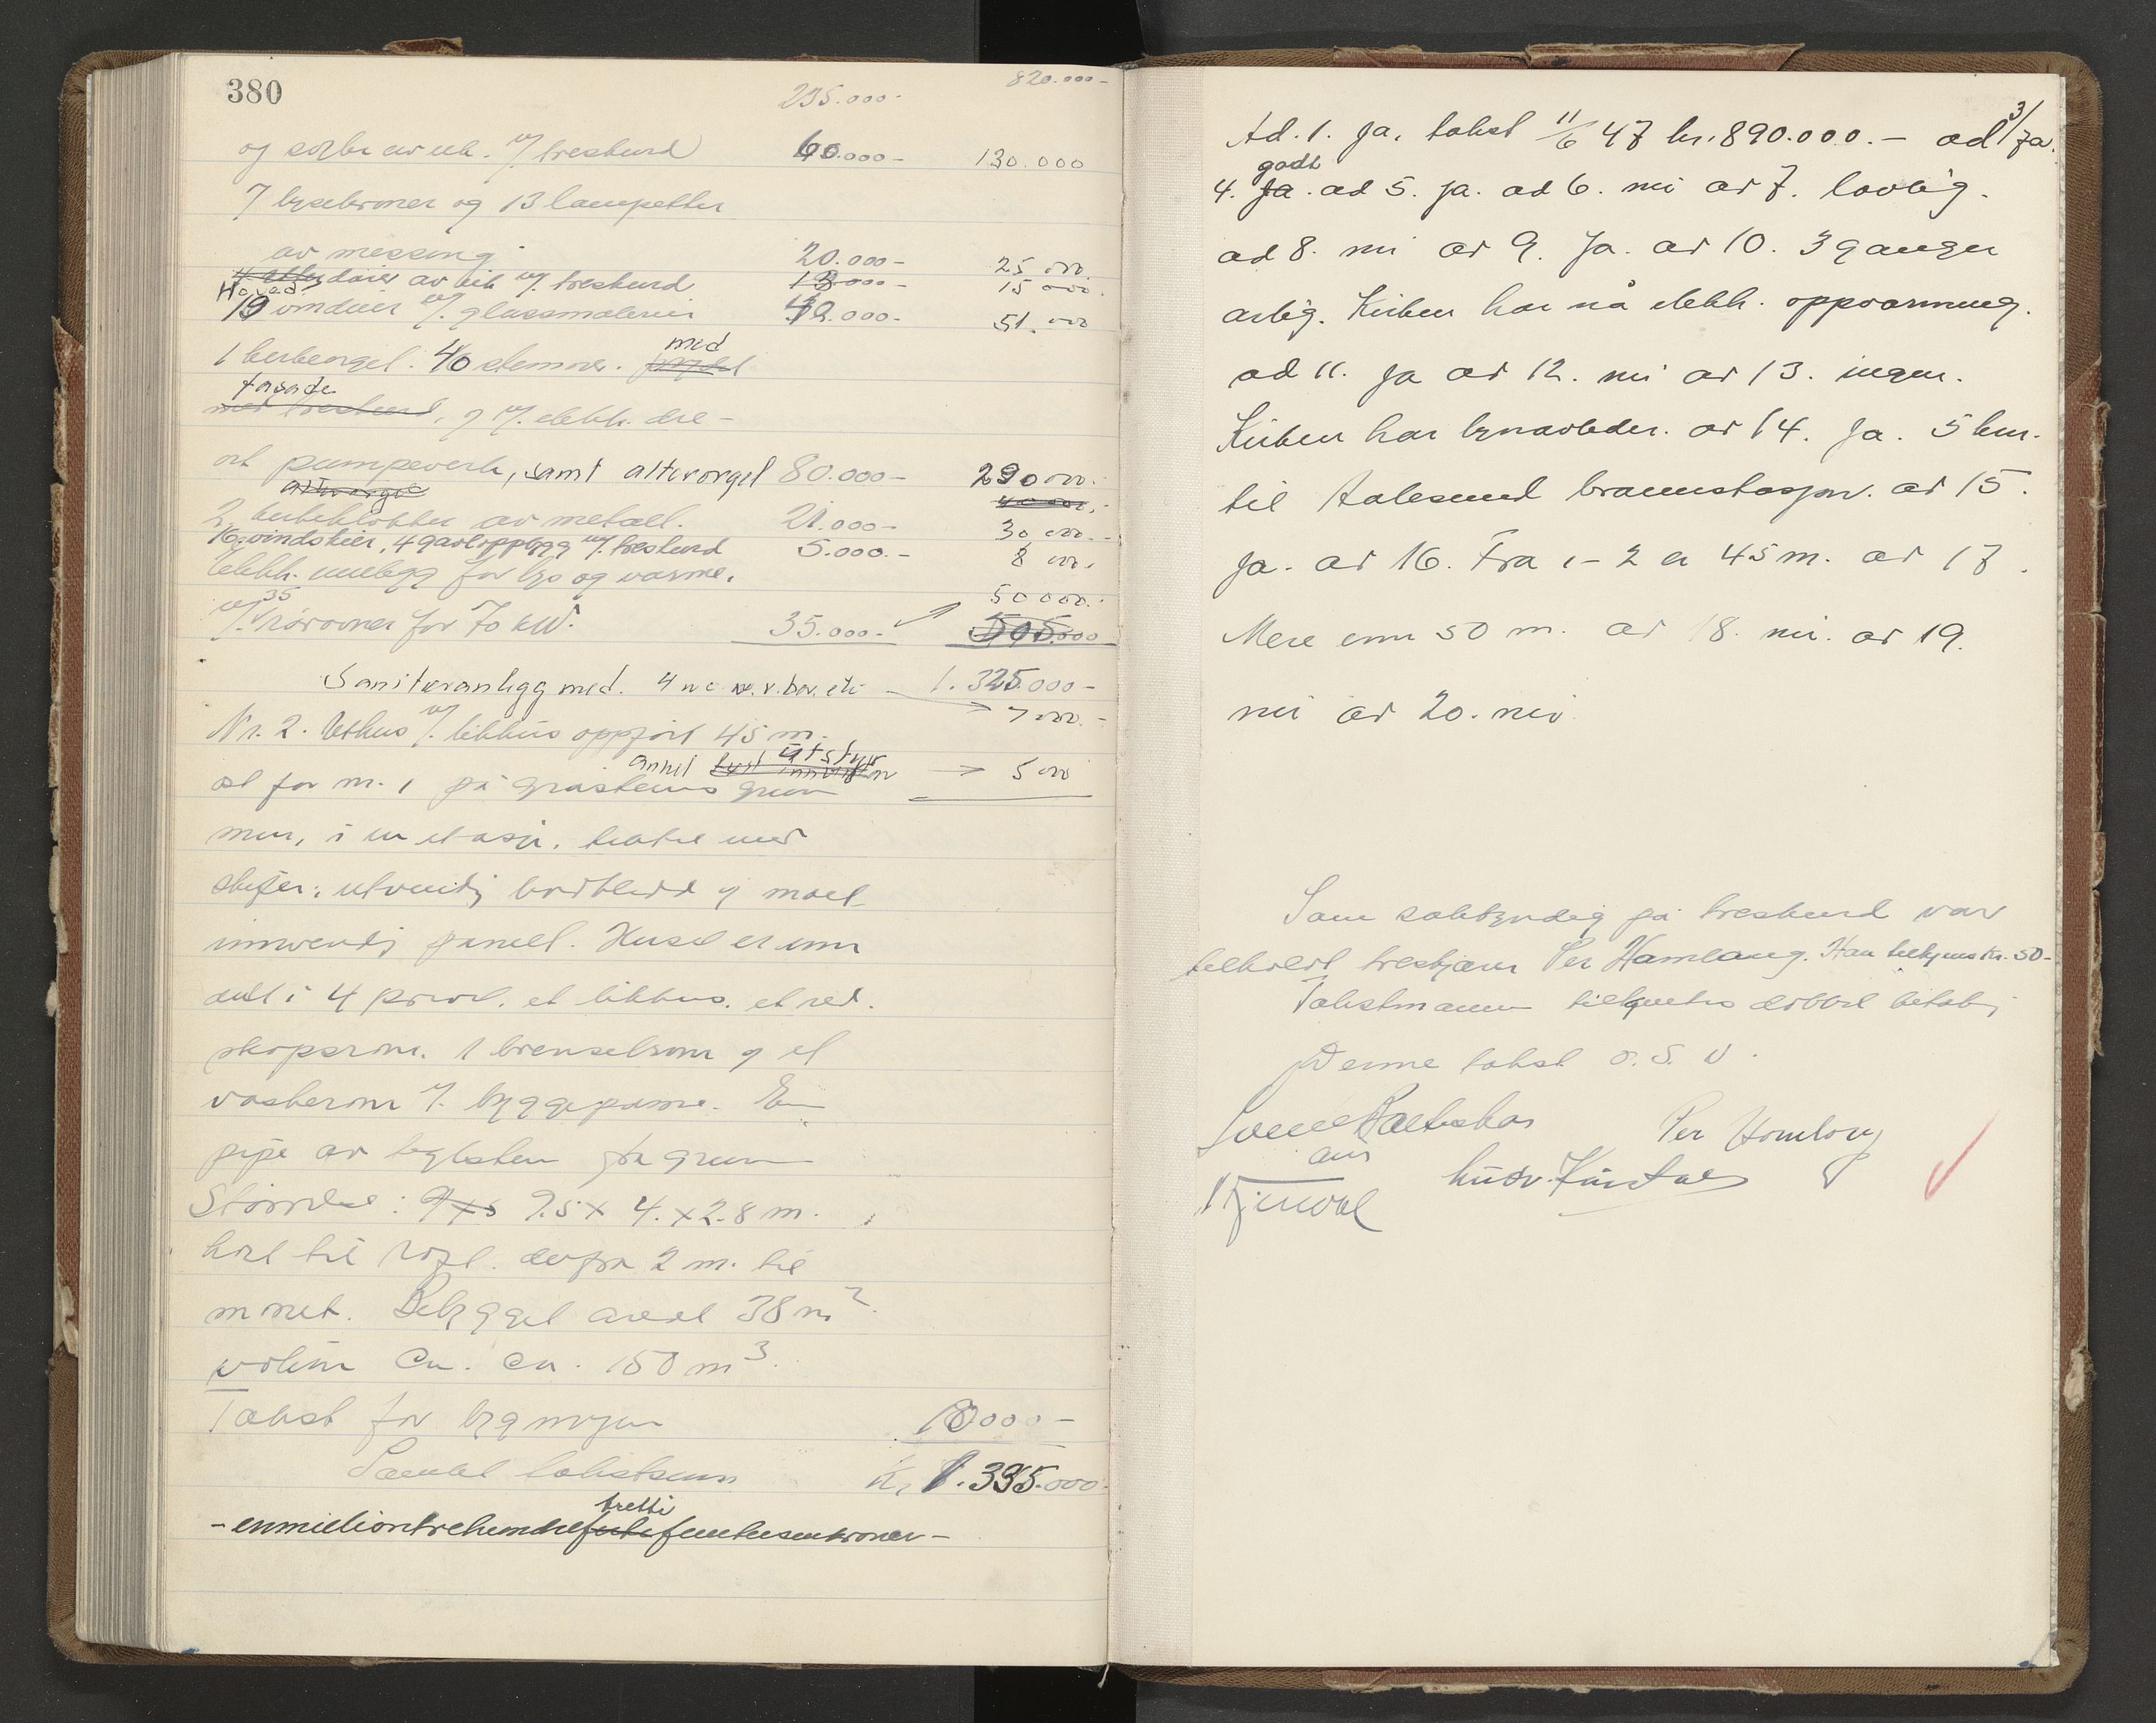 380
235.000.- 820.000-
og søiler av eik. m/. treskurd 60.000- 130.000
7 lysekroner og 13 lampetter
av messing 20.000- 25 000.
Hoved dører av eik m/. treskurd 13.000- 15 000.
19 vinduer m/. glassmalerier 51. 000
1 kirkeorgel. 40 stemmer. med
fasade og m/. elekk. dre-
vet pumpeverk, samt alterorgel 80.000- 290 000.-
alterorgel 40 000.-
2 kirkeklokker av metall. 21.000- 30 000.-
16 vindskier, 4 gavloppbygg m/. treskurd 5.000.- 8 000.
Elekk. innlegg for lys og varme. 50 000.-
m/. 35 rørovner for 70 kW. 35.000.- 505.000
Sanitæranlegg med. 4 wc 1.325.000-
7 000.-
Nr. 2. Uthus m/. likhus oppført 45 m.
annet utstyr 5 000
øst for nr. 1 på gråsteins grun
mur, i en etasje. tekket med
skifer. utvendig bordkledd og malt
innvendig panelt. Huset er inn
delt i 4 privet. et likhus. et red.
skapsrom. 1 brenselsrom og et
vaskerom m/. bryggepanne. En
pipe av teglsten fra grunn
Størrelse: 9x5 9.5 x 4. x 2.8 m.
høit til røst. derfra 2 m. til
mønet. Bebygget areal 38 m²
volum ca. ca. 150 m³.
Takst for bygningen 10000-
Samlet takstsum Kr. 1.335.000-
tretti
- enmilliontrehundre femtusenkroner -
Ad. 1. Ja, takst 11/6 47 kr. 890.000.- ad 3/ Ja.
godt
4. Ja. ad 5. Ja. ad 6. nei ad 7. lovlig.
ad 8. nei ad 9. Ja. ad 10. 3 ganger
årlig. Kirken har nå elekk. oppvarming.
ad 11. Ja ad 12. nei ad 13. ingen.
Kirken har lynavleder. ad 14. Ja. 5 km.
til Aalesund brannstasjon. ad 15.
Ja. ad 16. Fra 1-2 er 45 m. ad 17.
Mere enn 50 m. ad 18. nei. ad 19.
nei ad 20. nei
Som sakkyndig på treskurd var
tilkaldt treskjærer Per Hamlang. Han tilkjens kr. 50-
Takstmennene dobbel betaling
Denne takst o. S. V.
Per Hamlang